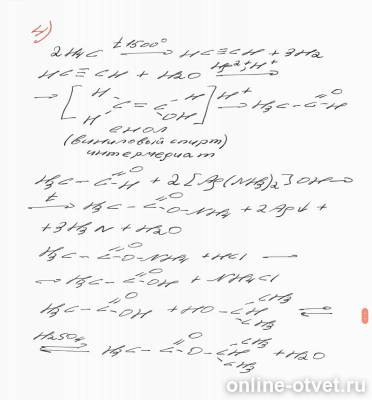 4)
2H4C t 1500° → HC≡CH + 3H2
HC≡CH + H2O Hg2+, H+ →
→ [ H H C=C H OH ] H+ → H3C-C=O-H
енол
(виниловый спирт)
интермедиат
H3C-C=O-H + 2[Ag(NH3)2]OH →
t → H3C-C=O-O-NH4 + 2Ag↓ +
+ 3H3N + H2O
H3C-C=O-O-NH4 + HCl →
→ H3C-C=O-OH + NH4Cl
H3C-C=O-OH + HO-CH-CH3 CH3 ⇌
H2SO4 ⇌ H3C-C=O-O-CH-CH3 CH3 + H2O
online-otvet.ru